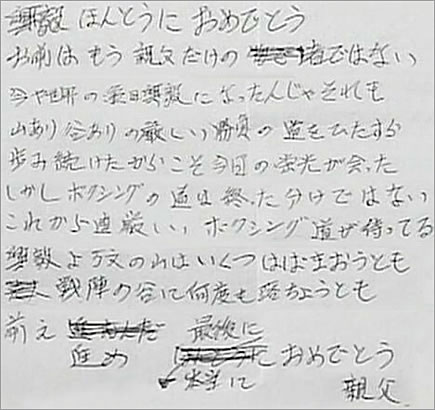 興毅 ほんとうに おめでとう
お前は もう 親父だけの 者ではない
今や世界の亀田興毅になったんじゃそれも
山あり谷ありの厳しい勝負の道をひたすら
歩み続けたからこそ今日の栄光が会った
しかしボクシングの道は終った分けではない
これから 厳しい ボクシング道が待ってる
興毅よ 万丈の山はいくつ
戦陣の谷に何度も落ちようとも
前え 進め
最後に
本当に おめでとう
親父